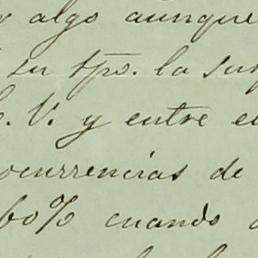 y algo aunque
su tpo. la su
V. y entre e
ocurrencias de
60% cuando